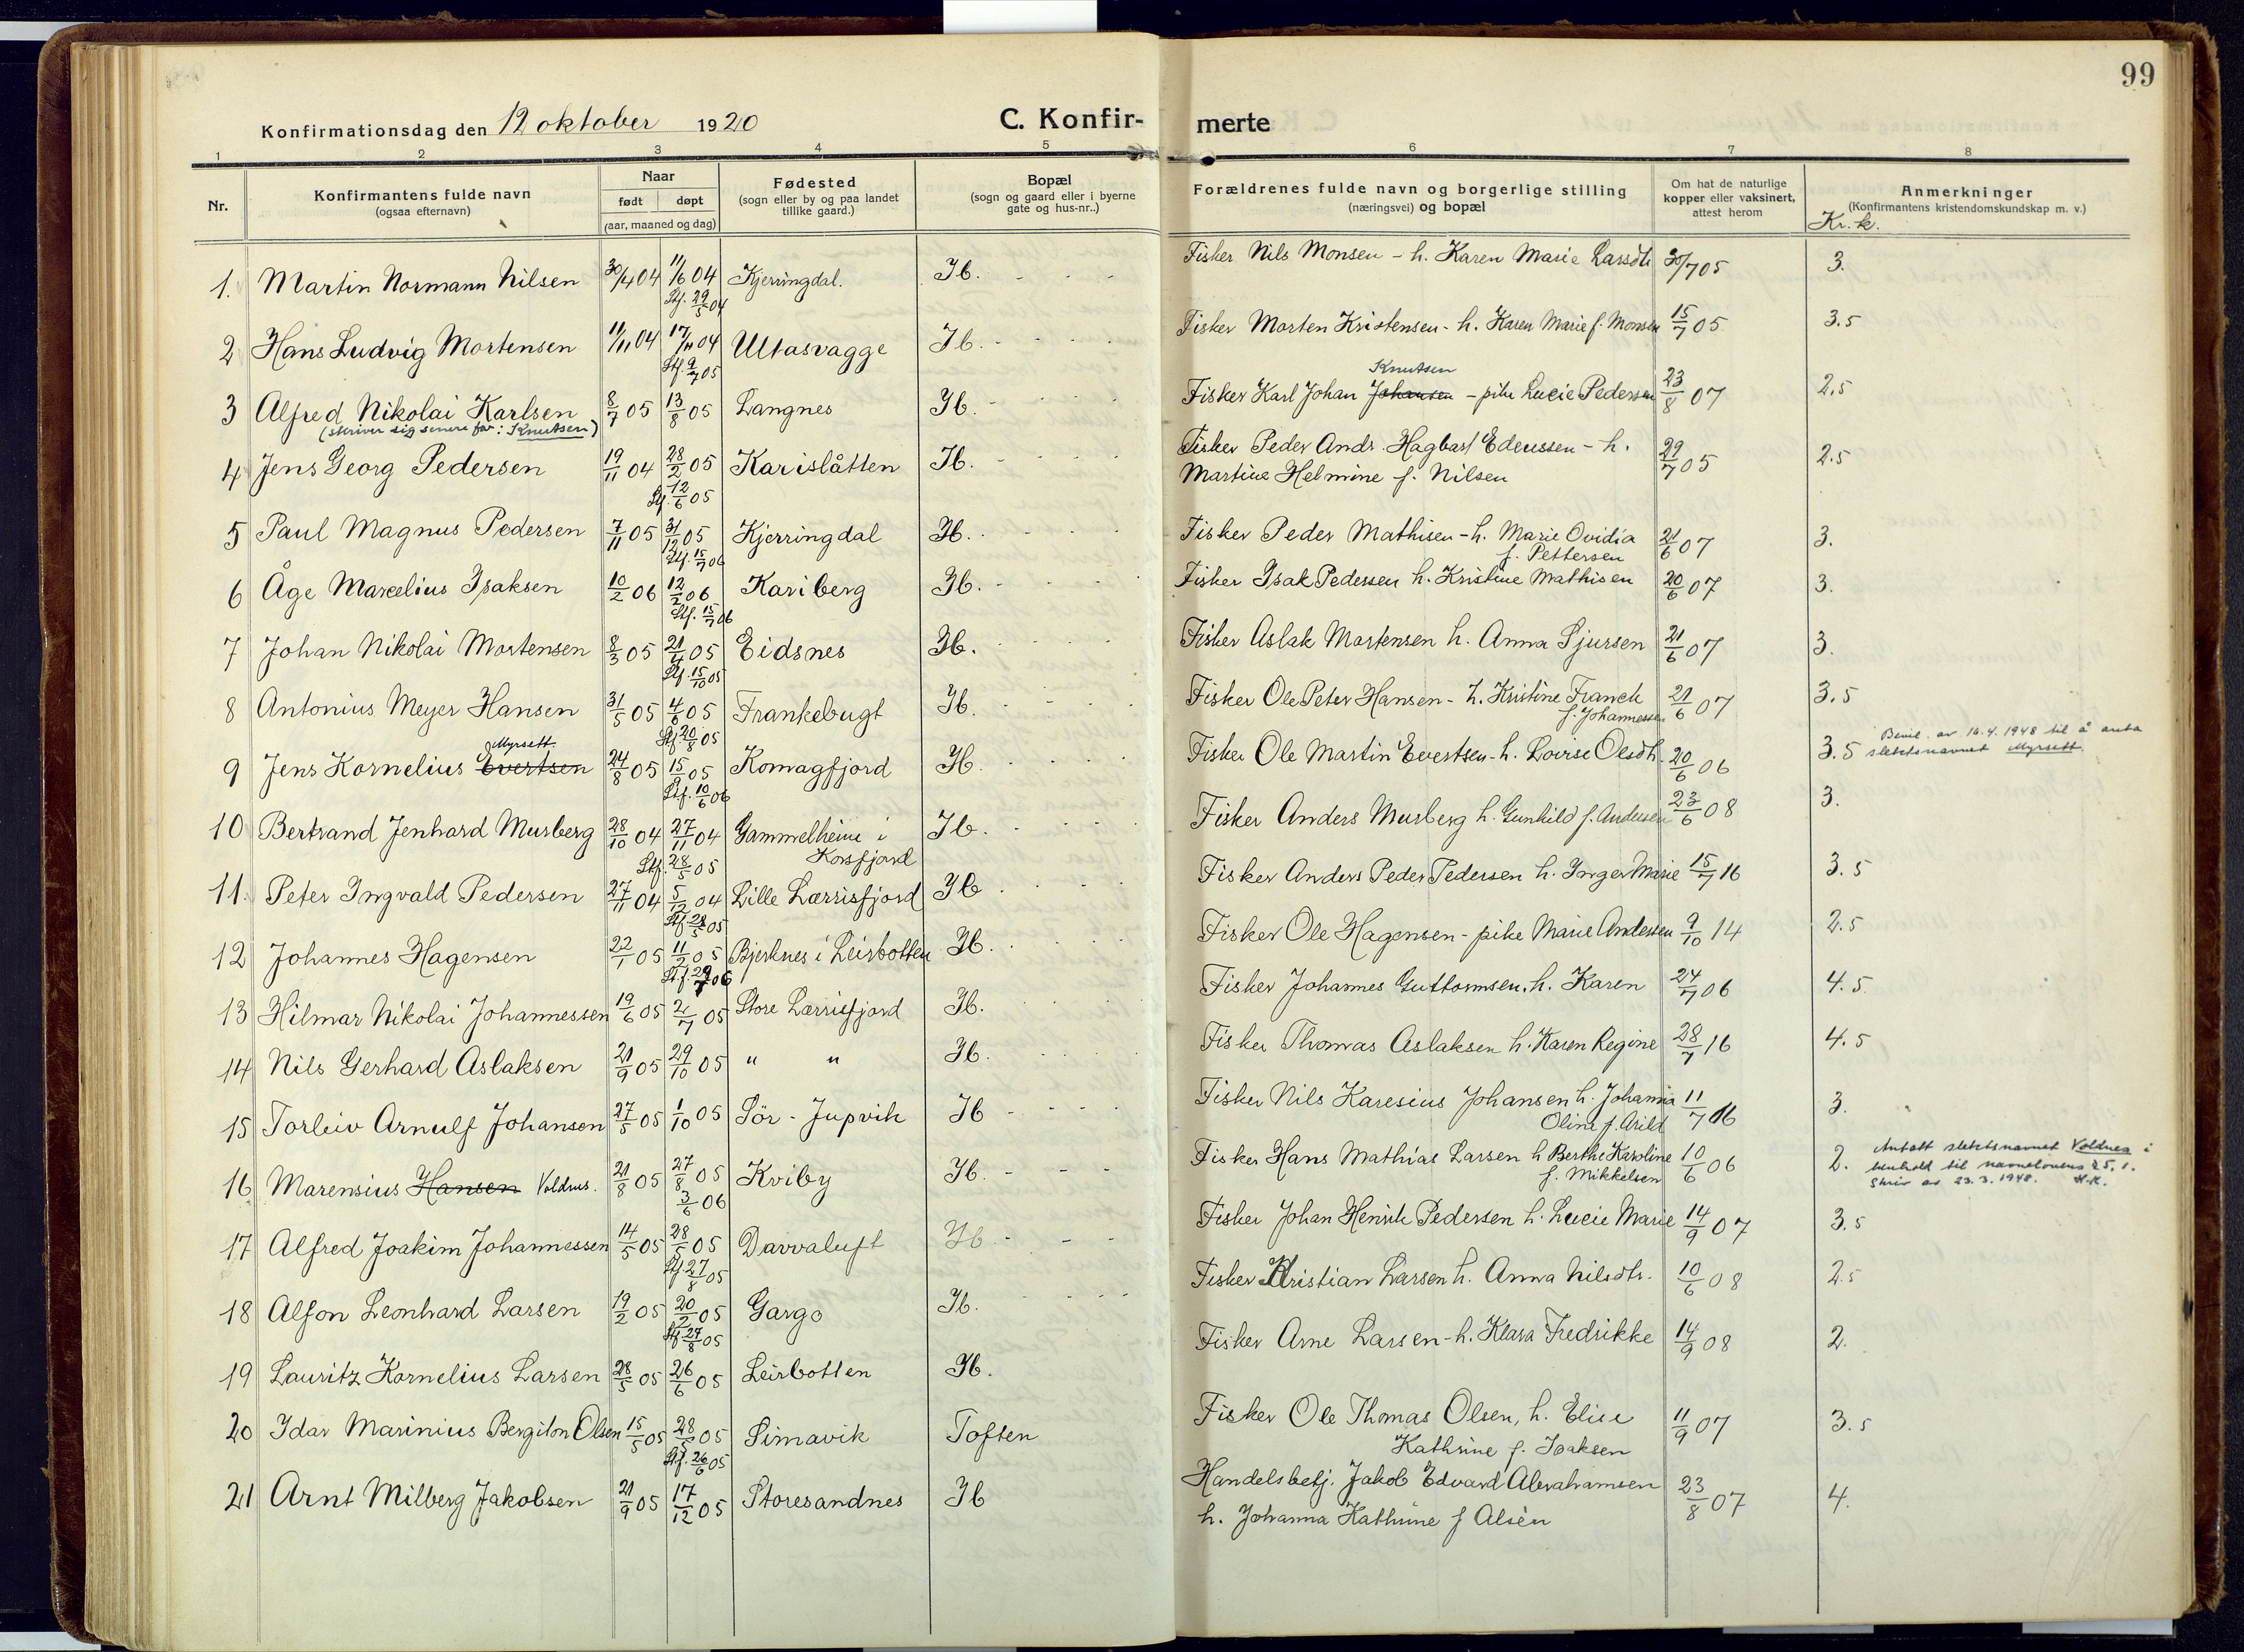 99
Konfirmationsdag den 12 oktober 1920
C. Konfir-merte
1 2 3 4 5 6 7 8
Nr.
Konfirmantens fulde navn
(ogsaa efternavn)
Naar
født døpt
(aar, maaned og dag)
Fødested
(sogn eller by og paa landet
tillike gaard.)
Bopæl
(sogn og gaard eller i byerne
gate og hus-nr..)
Forældrenes fulde navn og borgerlige stilling
(næringsvei) og bopæl
Om hat de naturlige
kopper eller vaksinert,
attest herom
Anmerkninger
(Konfirmantens kristendomskundskap m. v.)
Kr.k.
1. Martin Normann Nilsen 30/4 04 11/6 04 Kjerringdal. Ib. Fisker Nils Monsen - h. Karen Marie Larsdtr 30/7 05 3.
Stf. 29/5 04
2 Hans Ludvig Mortensen 11/11 04 17/11 04 Ultasvagge Ib. Fisker Morten Kristensen - h. Karen Marie f. Monsen 15/7 05 3.5
Stf. 9/7 05
Knutsen
3 Alfred Nikolai Karlsen 8/7 05 13/8 05 Langnes Ib. Fisker Karl Johan Johansen - pike Lucie Pedersen 23/8 07 2.5
(skriver sig senere for: Knutsen)
4 Jens Georg Pedersen 19/11 04 28/2 05 Karislåtten Ib. Fisker Peder Andr. Hagbart Edenssen - h. 29/7 05 2.5
Stf. 12/6 05 Martine Helmine f. Nilsen
5 Paul Magnus Pedersen 7/11 05 31/12 05 Kjerringdal Ib. Fisker Peder Mathisen - h. Marie Ovidia 21/6 07 3.
Stf. 15/7 06 f. Pettersen
6 Åge Marcelius Isaksen 10/2 06 12/2 06 Kariberg Ib. Fisker Isak Pedersen h. Kristine Mathisen 20/6 07 3.
Stf. 15/7 06
7 Johan Nikolai Mortensen 8/3 05 21/4 05 Eidsnes Ib. Fisker Aslak Mortensen h. Anna Sjursen 21/6 07 3.
Stf. 15/10 05
8 Antonius Meyer Hansen 31/5 05 4/6 05 Frankebugt Ib. Fisker Ole Peter Hansen - h. Kristine Franck 21/6 07 3.5
Stf 20/8 05 f. Johannessen
Myrsett. Bevil. av 16.4.1948 til å anta
9 Jens Kornelius Evertsen 24/8 05 15/ 05 Komagfjord Ib. Fisker Ole Martin Evertsen - h. Lovise Olsdtr. 20/6 06 3.5 slektsnavnet Myrsett.
Stf. 10/6 06
10 Bertrand Jenhard Murberg 28/10 04 27/11 04 Gammelheim i Ib. Fisker Anders Murberg h. Gunhild f. Andersen 23/6 08 3.
Stf. 28/5 05 Korsfjord
11. Peter Ingvald Pedersen 27/11 04 5/12 04 Lille Lærrisfjord Ib Fisker Anders Peder Pedersen h. Inger Marie 15/7 16 3.5
Stf. 28/5 05
12 Johannes Hagensen 22/1 05 11/2 05 Bjerknes i Leirbotten Ib. Fisker Ole Hagensen - pike Marie Andersen 9/10 14 2.5
Stf. 29/7 06
13 Hilmar Nikolai Johannessen 19/6 05 2/7 05 Store Lærrisfjord Ib. Fisker Johannes Guttormsen. h. Karen 24/7 06 4.5
14 Nils Gerhard Aslaksen 21/9 05 29/10 05 " " Ib. Fisker Thomas Aslaksen h. Karen Regine 28/7 16 4.5
15 Torleiv Arnulf Johansen 27/5 05 1/10 05 Sör - Jupvik Ib Fisker Nils Karesius Johansen h. Johanna 11/7 06 3.
Oline f. Arild
16 Marensius Hansen Voldnes. 21/8 05 27/8 05 Kviby Ib. Fisker Hans Mathias Larsen h Berthe Karoline 10/6 06 2. Antatt slektsnavnet Voldnes i
3/6 06 f. Mikkelsen henhold til navnelovens § 5, 1.
Skriv av 23.3.1948. H.K.
17 Alfred Joakim Johannessen 14/5 05 28/5 05 Davvaluft Ib Fisker Johan Henrik Pedersen h. Lucie Marie 14/9 07 3.5
Stf. 27/8 05
18 Alfon Leonhard Larsen 19/2 05 20/2 05 Gargo Ib. Fisker Kristian Larsen h. Anna Nilsdtr. 10/6 08 2.5
Stf 27/8 05
19 Lauritz Kornelius Larsen 28/5 05 26/6 05 Leirbotten Ib. Fisker Arne Larsen - h. Klara Fredrikke 14/9 08 2.
20 Idar Marinius Bergiton Olsen 15/5 05 28/5 05 Simavik Toften Fisker Ole Thomas Olsen, h. Elise 11/9 07 3.5
Stf. 26/6 05 Kathrine f. Isaksen
21 Arnt Milberg Jakobsen 21/9 05 17/12 05 Storesandnes Ib Handelsbetj. Jakob Edvard Abrahamsen 23/8 07 4.
h. Johanna Kathrine f Alsèn